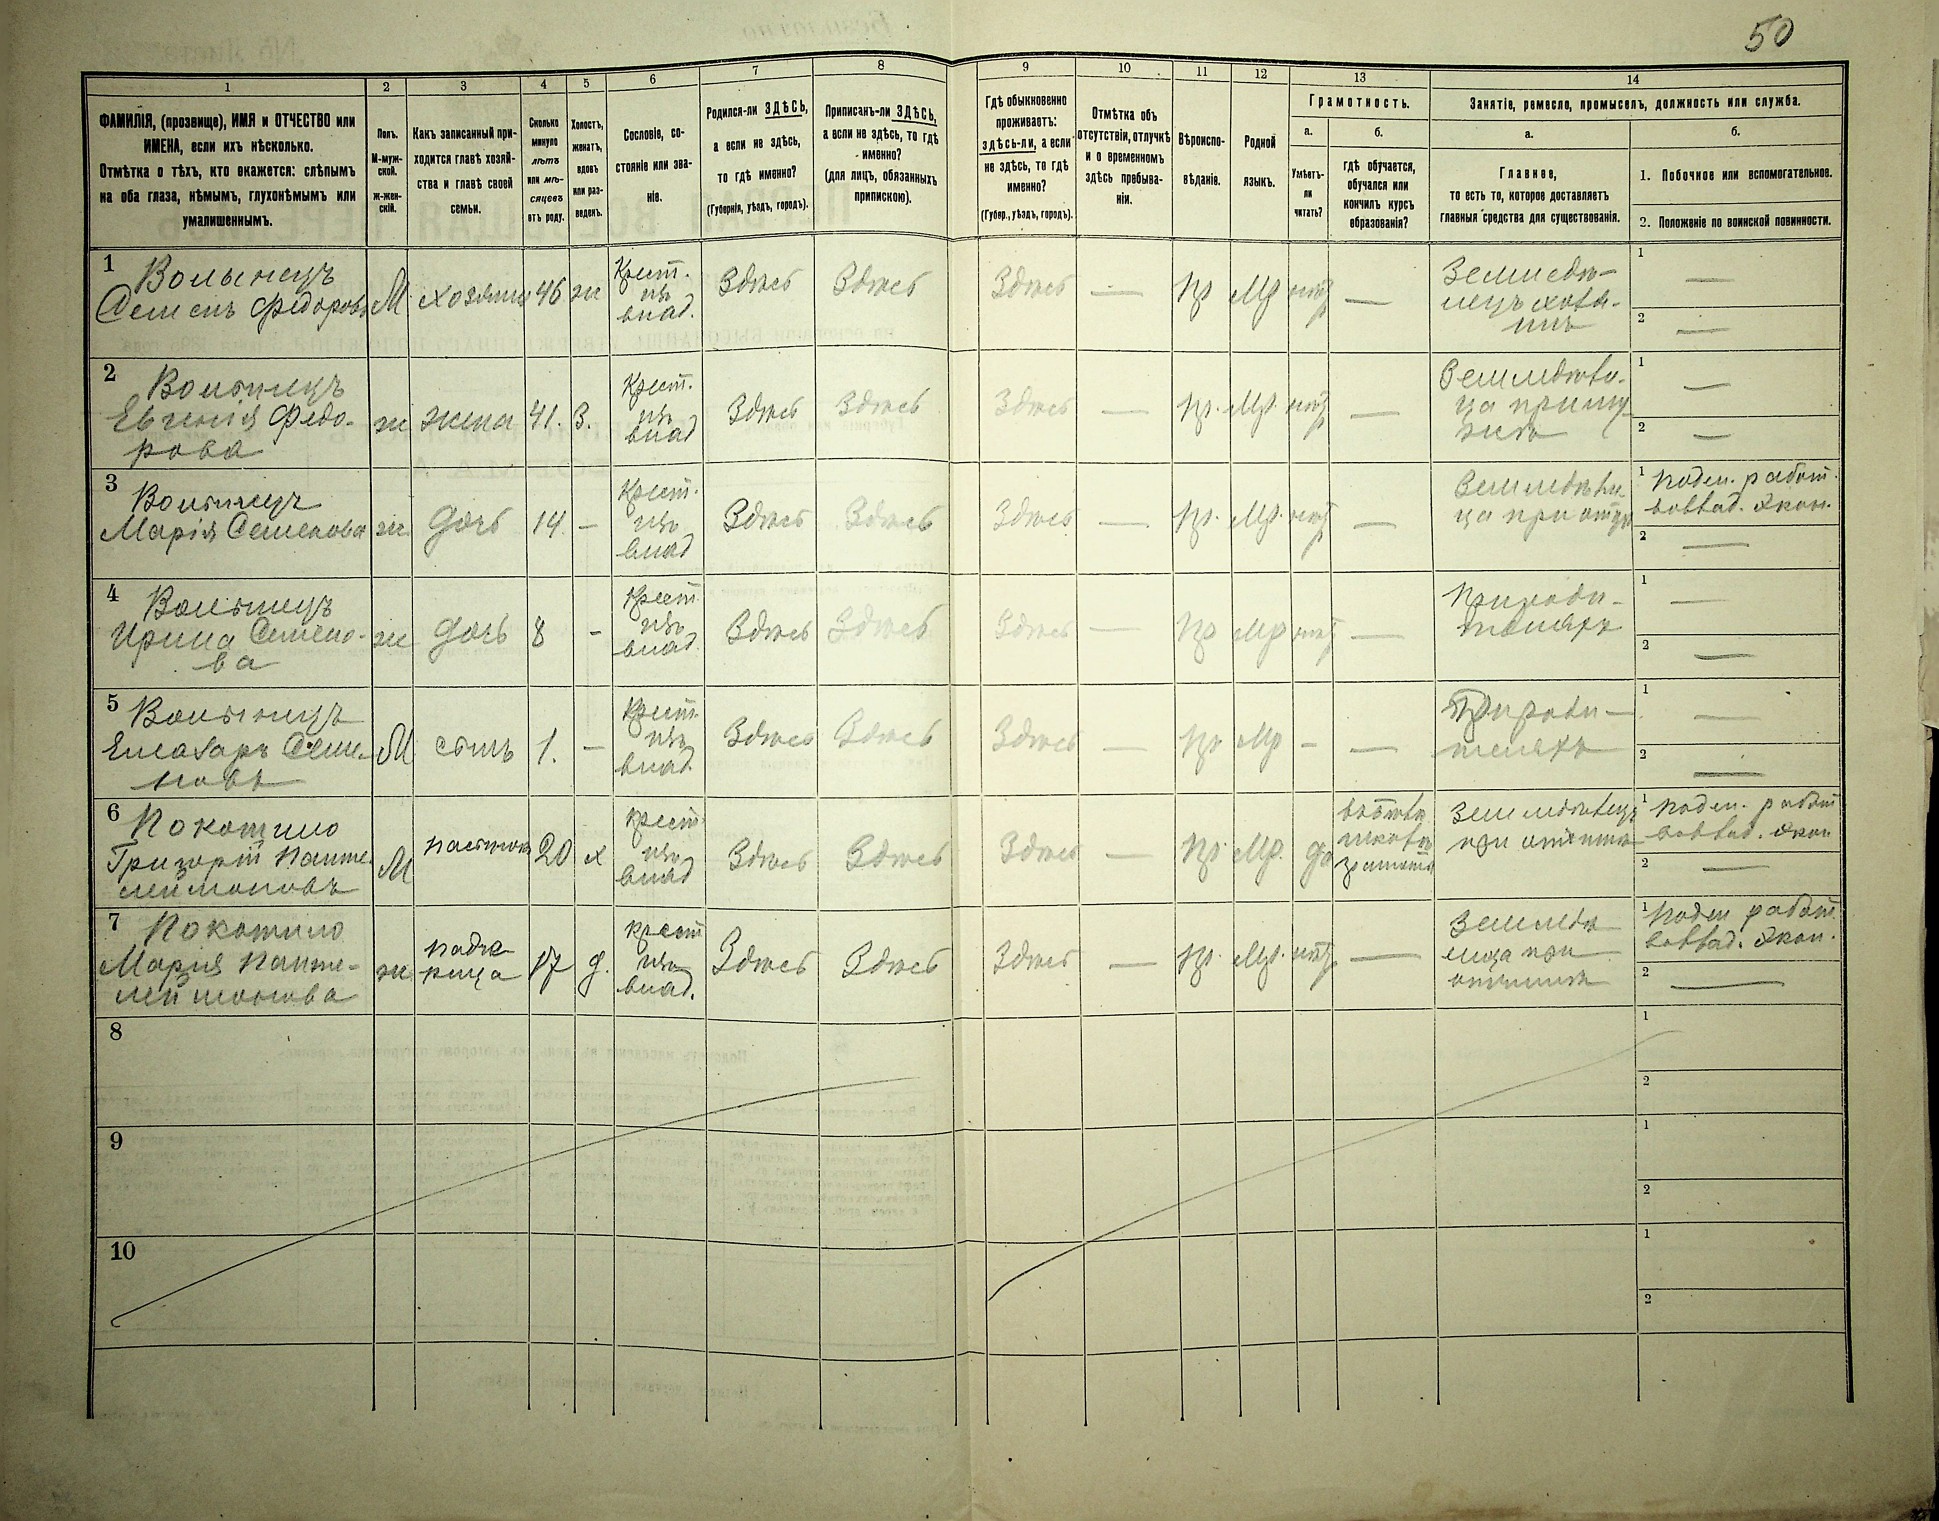 50
1
2
3
4
5
6
7
8
9
10
11
12
13
14
ФАМИЛІЯ, (прозвище), ИМЯ и ОТЧЕСТВО или
ИМЕНА, если ихъ нѣсколько.
Отмѣтка о тѣхъ, кто окажется: слѣпымъ
на оба глаза, нѣмымъ, глухонѣмымъ или
умалишеннымъ.
Полъ.
М-муж-
ской.
ж-жен-
скій.
Какъ записанный при-
ходится главѣ хозяй-
ства и главѣ своей
семьи.
Сколько
минуло
лѣтъ
или мѣ-
сяцевъ
отъ роду.
Холостъ,
женатъ,
вдовъ
или раз-
веденъ.
Сословіе, со-
стояніе или зва-
ніе.
Родился-ли ЗДѢСЬ,
а если не здѣсь,
то гдѣ именно?
(Губернія, уѣздъ, городъ).
Приписанъ-ли ЗДѢСЬ,
а если не здѣсь, то гдѣ
именно?
(для лицъ, обязанныхъ
припискою).
Гдѣ обыкновенно
проживаетъ:
здѣсь-ли, а если
не здѣсь, то гдѣ
именно?
(Губер., уѣздъ, городъ).
Отмѣтка объ
отсутствіи, отлучкѣ
и о временномъ
здѣсь пребыва-
ніи.
Вѣроиспо-
вѣданіе.
Родной
языкъ.
Грамотность.
а.
Умѣетъ-
ли
читать?
б.
гдѣ обучается,
обучался или
кончилъ курсъ
образованія?
Занятіе, ремесло, промыселъ, должность или служба.
а.
Главное,
то есть то, которое доставляетъ
главныя средства для существованія.
б.
1. Побочное или вспомогательное.
2. Положеніе по воинской повинности.
1
Волынецъ
Семенъ Федоровъ
М
хозяинъ
46
ж
Крест.
изъ
влад.
Здѣсь
Здѣсь
Здѣсь
—
пр
Мр
нѣтъ
—
Земледѣ-
лецъ хозя-
инъ
1
—
2
—
2
Волынецъ
Евгенія Федо-
рова
ж
жена
41.
З.
Крест.
изъ
влад
Здѣсь
Здѣсь
Здѣсь
—
пр.
Мр.
нѣтъ
—
при му-
жѣ
1
—
2
—
3
Волынецъ
Марія Семенова
ж
дочь
14
—
Крест.
изъ
влад
Здѣсь
Здѣсь
Здѣсь
—
пр.
Мр.
нѣтъ
—
ца при отцѣ
1
Поден. работ.
экон.
2
—
4
Волынецъ
Ирина Семено-
ва
ж
дочь
8
-
Крест
изъ
влад
Здѣсь
Здѣсь
Здѣсь
—
пр
Мр
нѣтъ
—
При роди-
теляхъ
1
—
2
—
5
Волынецъ
Елеазаръ Семе-
новъ
М
сынъ
1.
—
Крест.
изъ
влад
Здѣсь
Здѣсь
Здѣсь
—
пр
Мр
-
—
При роди-
теляхъ
1
—
2
—
6
Покотило
Григорій Панте-
леймоновъ
М
пасынокъ
20
х
Крест.
изъ
влад
Здѣсь
Здѣсь
Здѣсь
—
пр.
Мр.
да
грамоты
Земледѣлецъ
при отчимѣ
1
Поден. работ
экон
2
—
7
Покотило
Марія Панте-
леймонова
ж
падче-
рица
17
д.
Крест
изъ
влад.
Здѣсь
Здѣсь
Здѣсь
—
пр.
Мр.
нѣтъ
—
при
отчимѣ
1
Поден работ.
экон.
2
—
8
1
2
9
1
2
10
1
2